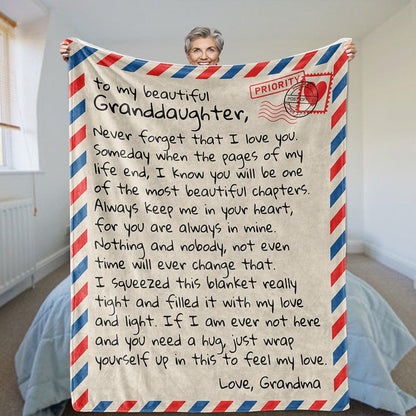 to my beautiful
Granddaughter,
PRIORITY
Never forget that I love you.
Someday when the pages of my
life end, I know you will be one
of the most beautiful chapters.
Always keep me in your heart,
for you are always in mine.
Nothing and nobody, not even
time will ever change that.
I squeezed this blanket really
tight and filled it with my love
and light. If I am ever not here
and you need a hug, just wrap
yourself up in this to feel my love.
Love, Grandma